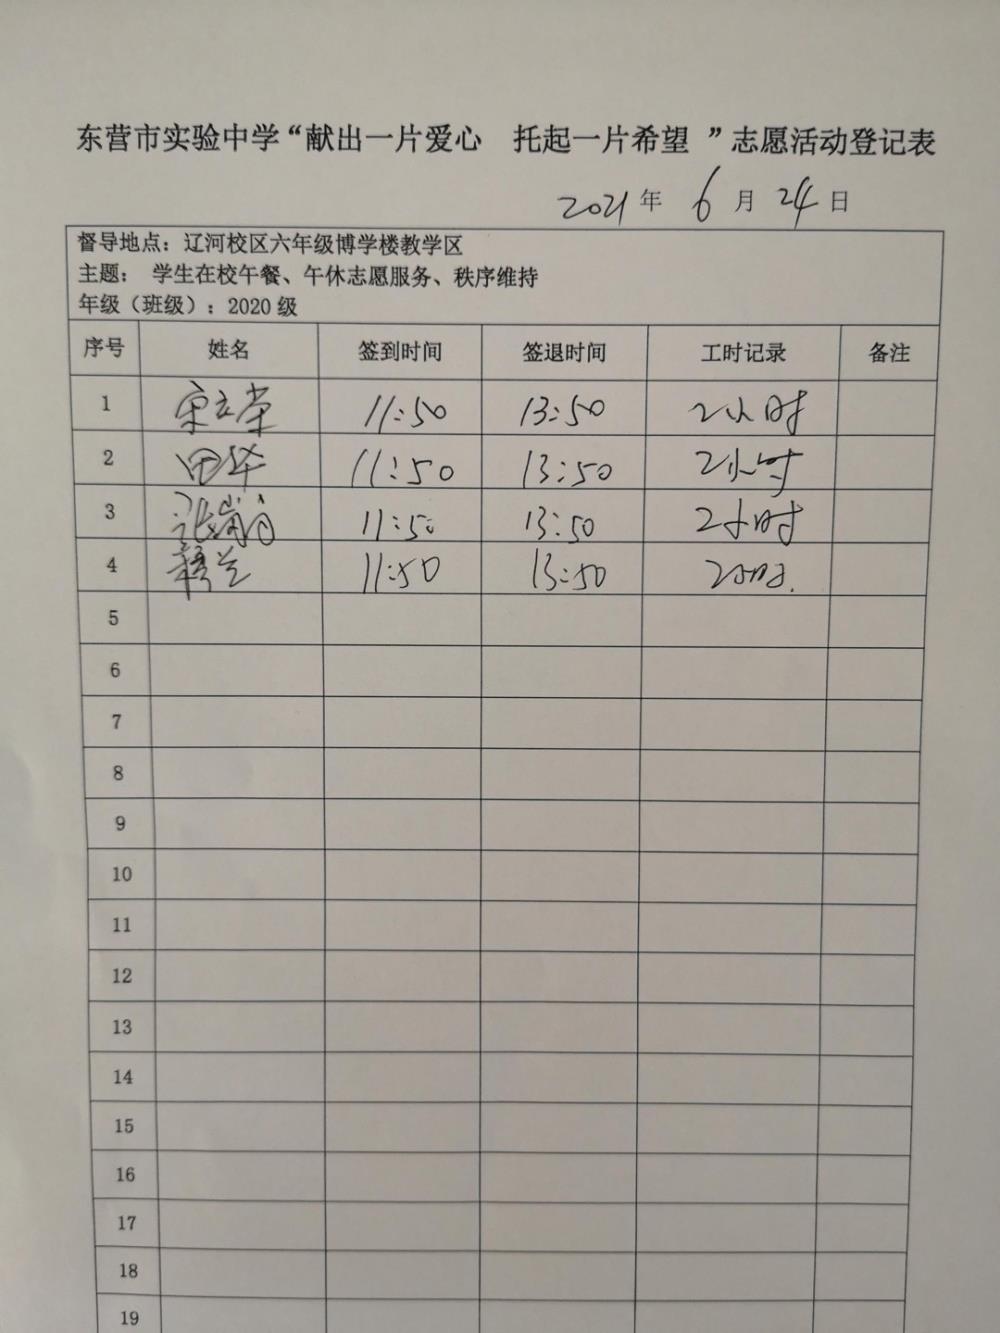 东营市实验中学“献出一片爱心 托起一片希望 ”志愿活动登记表
2021 年 6 月 24 日
督导地点：辽河校区六年级博学楼教学区
主题： 学生在校午餐、午休志愿服务、秩序维持
年级（班级）：2020 级
序号 姓名 签到时间 签退时间 工时记录 备注
1 宋立荣 11:50 13:50 2小时
2 田华 11:50 13:50 2小时
3 11:50 13:50 2小时
4 11:50 13:50 2小时.
5
6
7
8
9
10
11
12
13
14
15
16
17
18
19